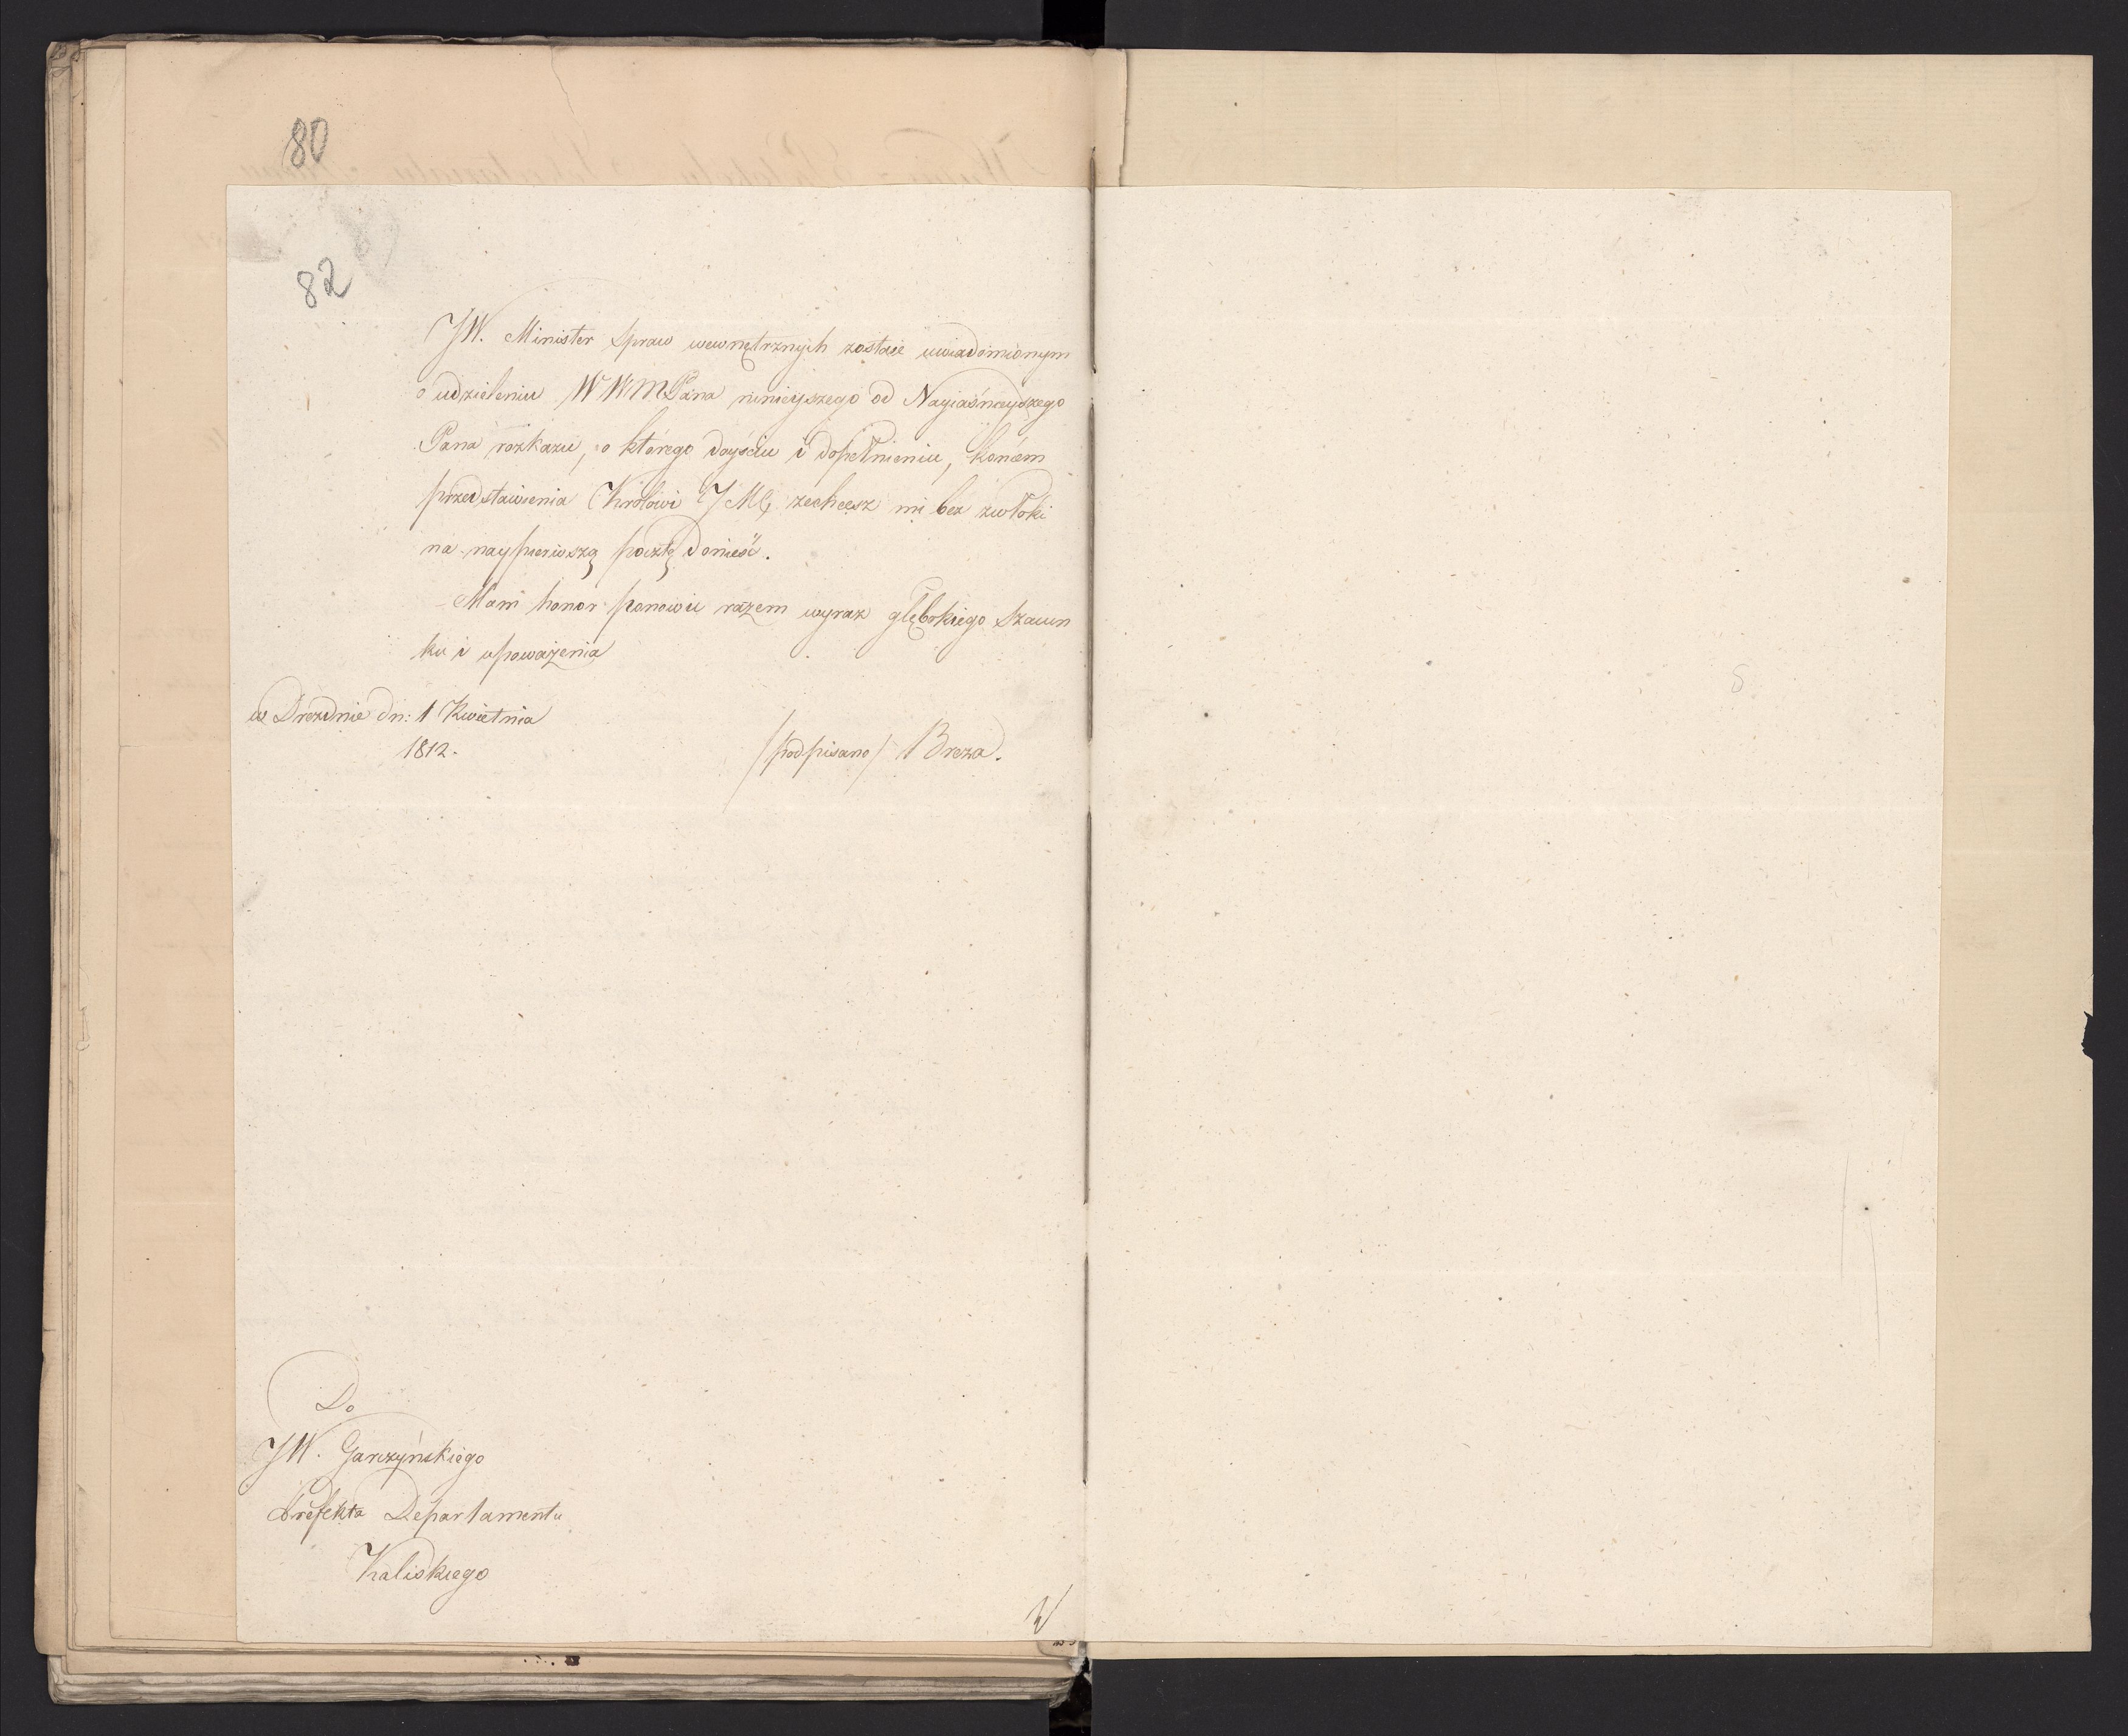 80
82
JW. Minister Spraw wewnętrznych zostaie uwiadomionym
o udzieleniu WWMPana ninieyszego od Nayiaśnieyszego
Pana rozkazu, o którego doyściu i dopełnieniu, końcem
przedstawienia Królowi JMci, zechcesz mi bez zwłoki
na naypierwszą pocztę donieść.
Mam honor ponowić razem wyraz głębokiego szacun
ku i upoważenia
w Dreznie dn: 1 Kwietnia
1812.
/podpisano/ Breza.
Do
JW. Garczyńskiego
Prefekta Departamentu
Kaliskiego